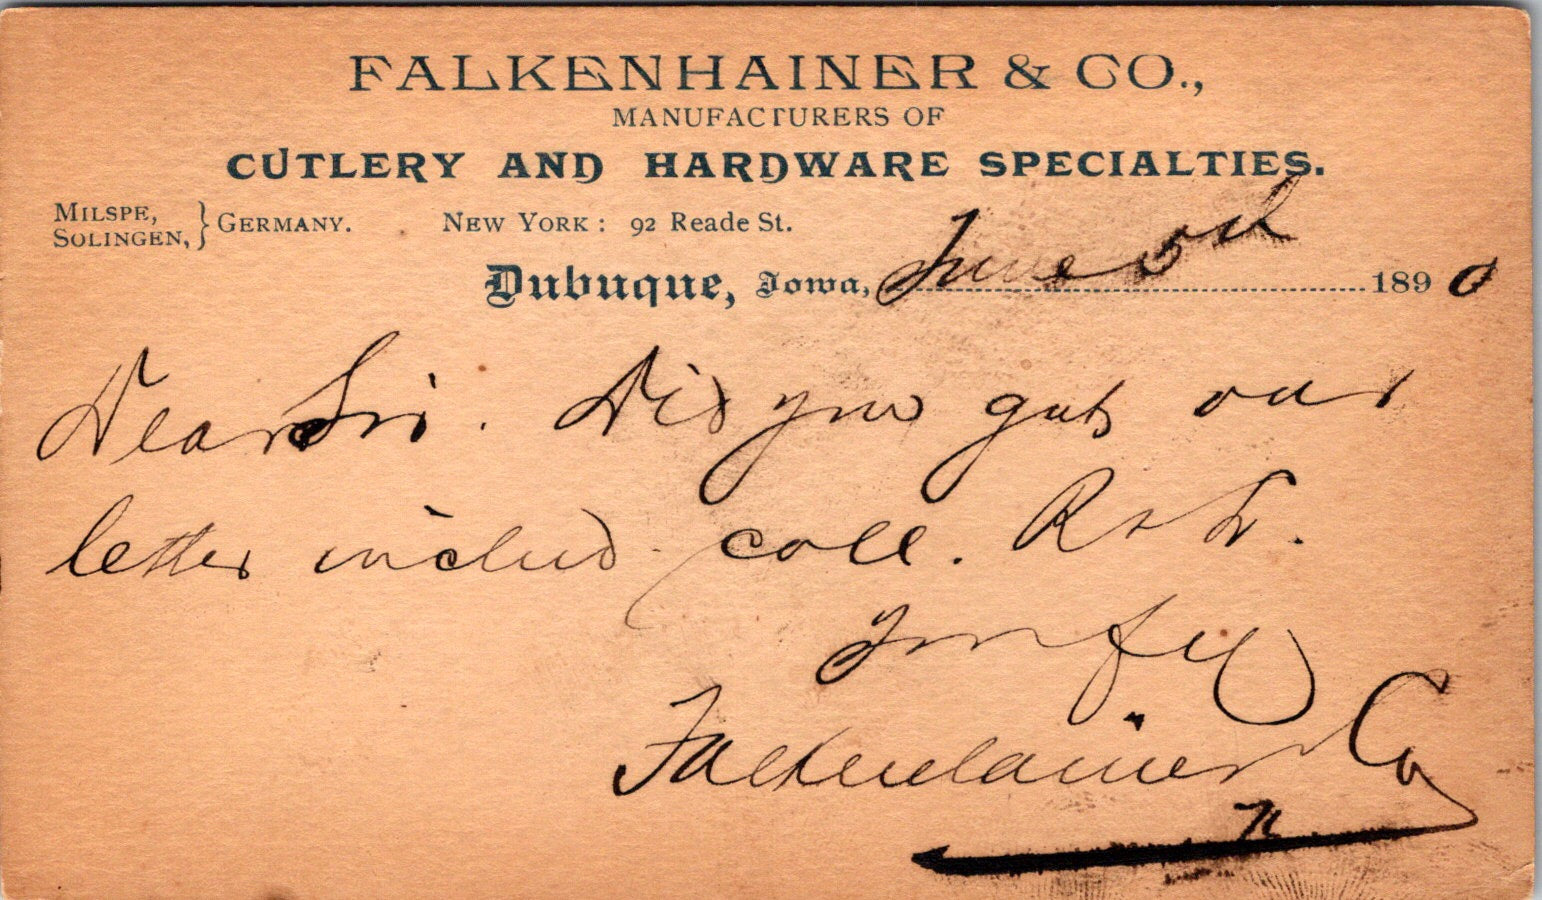 FALKENHAINER & CO.,
MANUFACTURERS OF
CUTLERY AND HARDWARE SPECIALTIES.
MILSPE, SOLINGEN, } GERMANY. NEW YORK: 92 Reade St.
Dubuque, Iowa, June 5th 1890
Dear Sir. Did you get our
letter includ. coll.
Falkenhainer Co